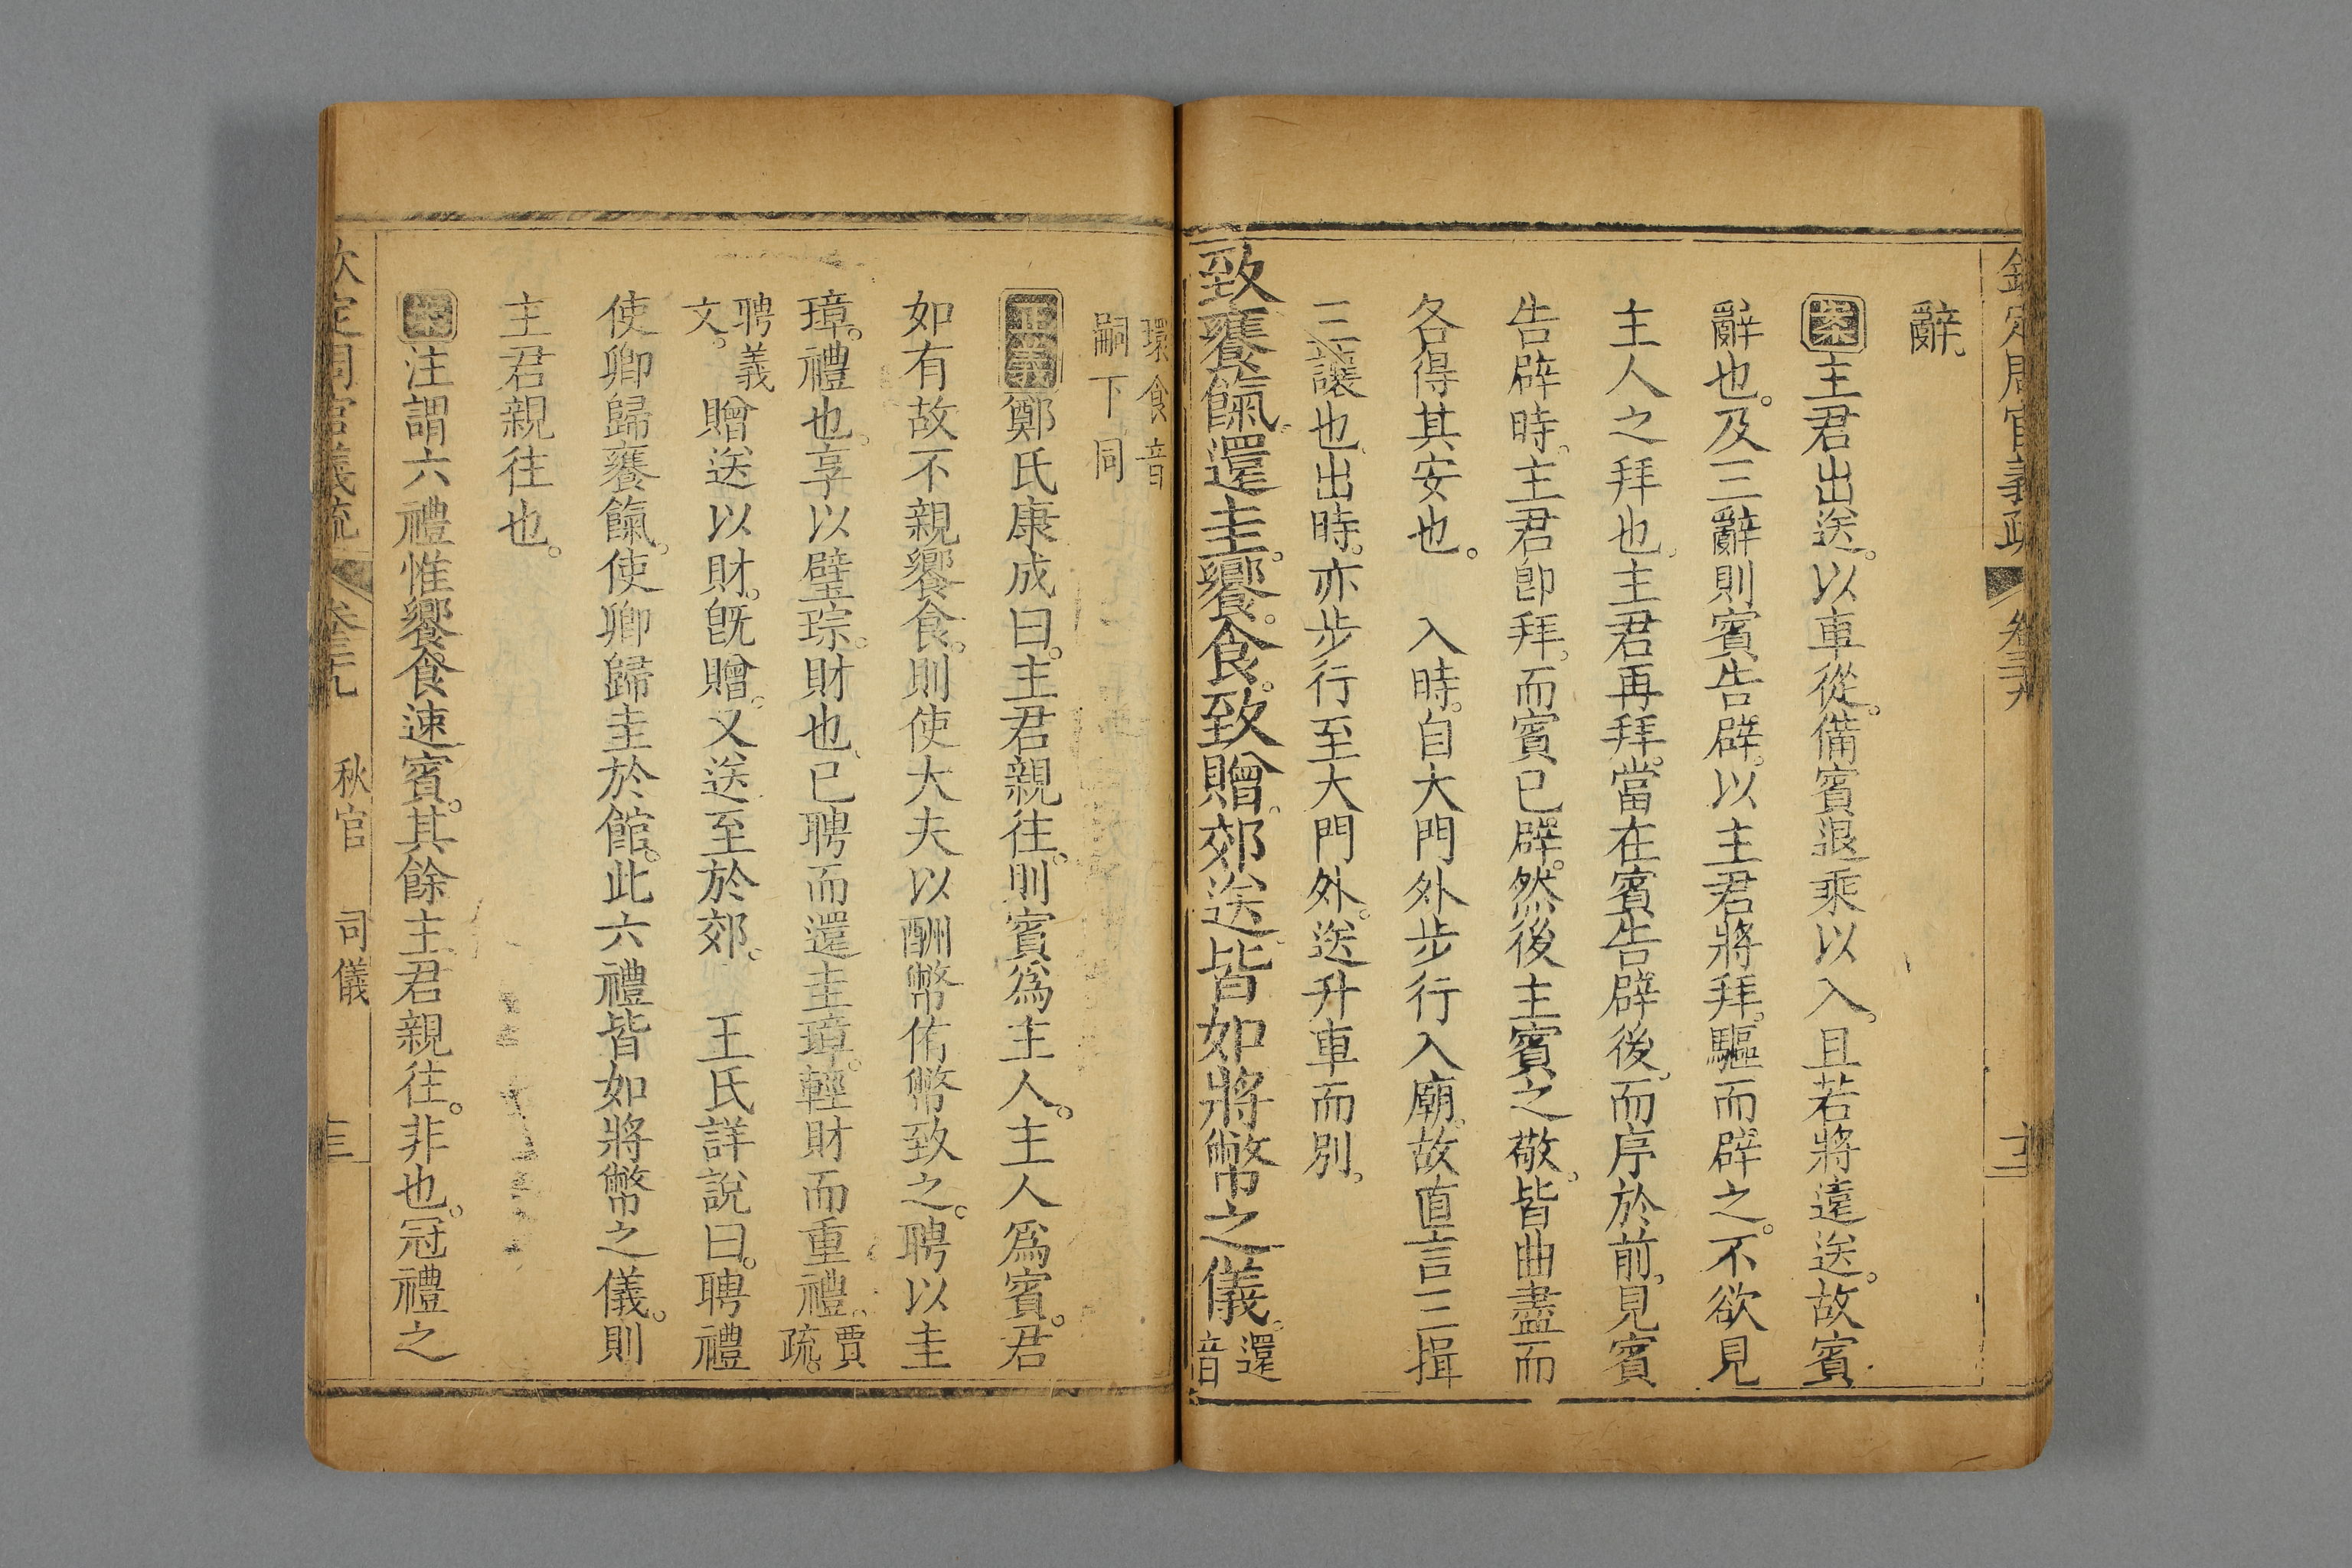 欽定周官義疏 卷三十九 十二
辭。
案主君出送。以車從。備賓退乘以入。且若將遠送。故賓
辭也。及三辭則賓告辟。以主君將拜。驅而辟之。不欲見
主人之拜也。主君再拜。當在賓告辟後。而序於前。見賓
告辟時。主君卽拜。而賓已辟。然後主賓之敬。皆曲盡而
各得其安也。 入時。自大門外步行入廟。故直言三揖
三讓也。出時。亦步行至大門外。送升車而別。
致饔餼。還圭。饗。食。致贈。郊送。皆如將幣之儀。還音
環食音嗣下同
正義鄭氏康成曰。主君親往。則賓爲主人。主人爲賓。君
如有故不親饗食。則使大夫以酬幣侑幣致之。聘以圭
璋。禮也。享以璧琮。財也。已聘而還圭璋。輕財而重禮。賈疏。
聘義文。贈送以財。旣贈。又送至於郊。 王氏詳說曰。聘禮
使卿歸饔餼。使卿歸圭於館。此六禮皆如將幣之儀。則
主君親往也。
案注謂六禮惟饗食速賓。其餘主君親往。非也。冠禮之
欽定周官義疏 卷三十九 秋官 司儀 十三